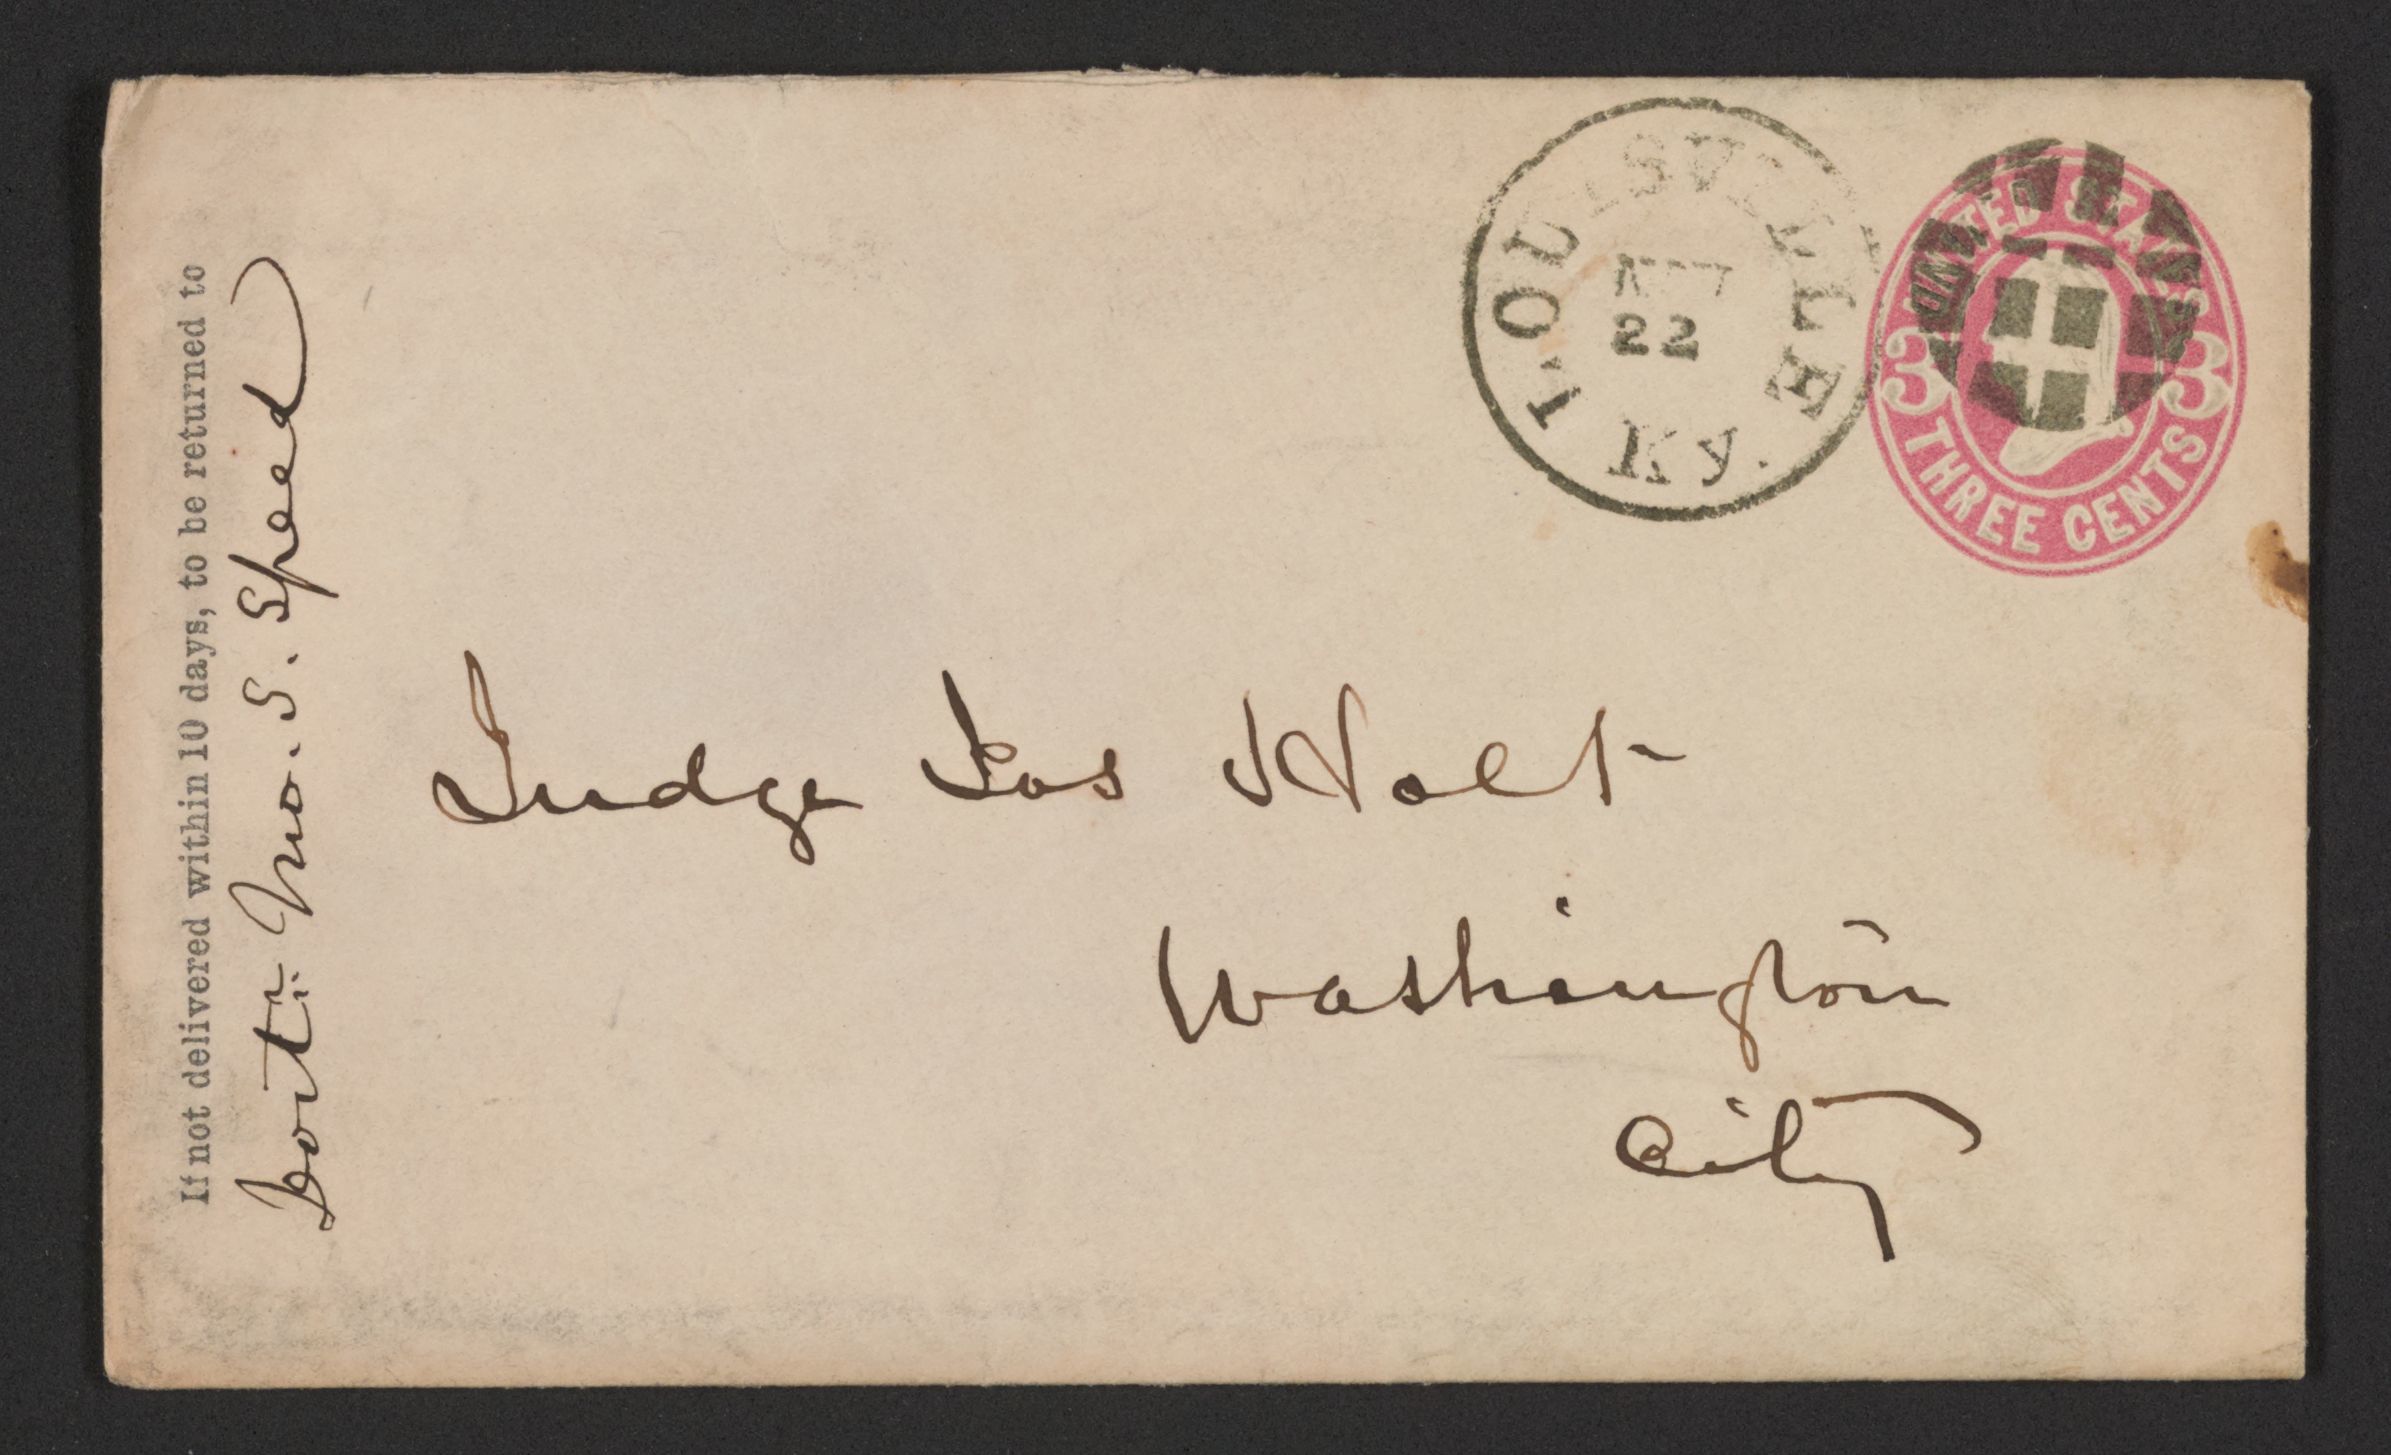 If not delivered within 10 days, to be returned to
Mo. S. Speed
LOUISVILLE
22
Ky.
UNITED STATES
3 3
THREE CENTS
Judge Jos Holt
Washington
City